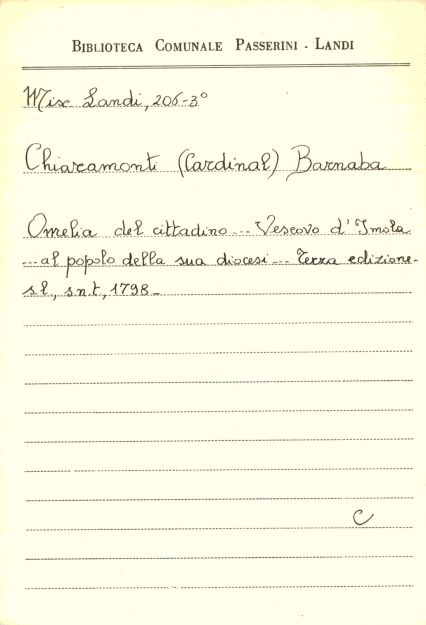 BIBLIOTECA COMUNALE PASSERINI - LANDI
Misc Landi, 206-3°
Chiaramonti (Cardinal) Barnaba
Omelia del cittadino --- Vescovo d'Imola
--- al popolo della sua diocesi --- Terza edizione-
s.l, s.n.t, 1798-
C